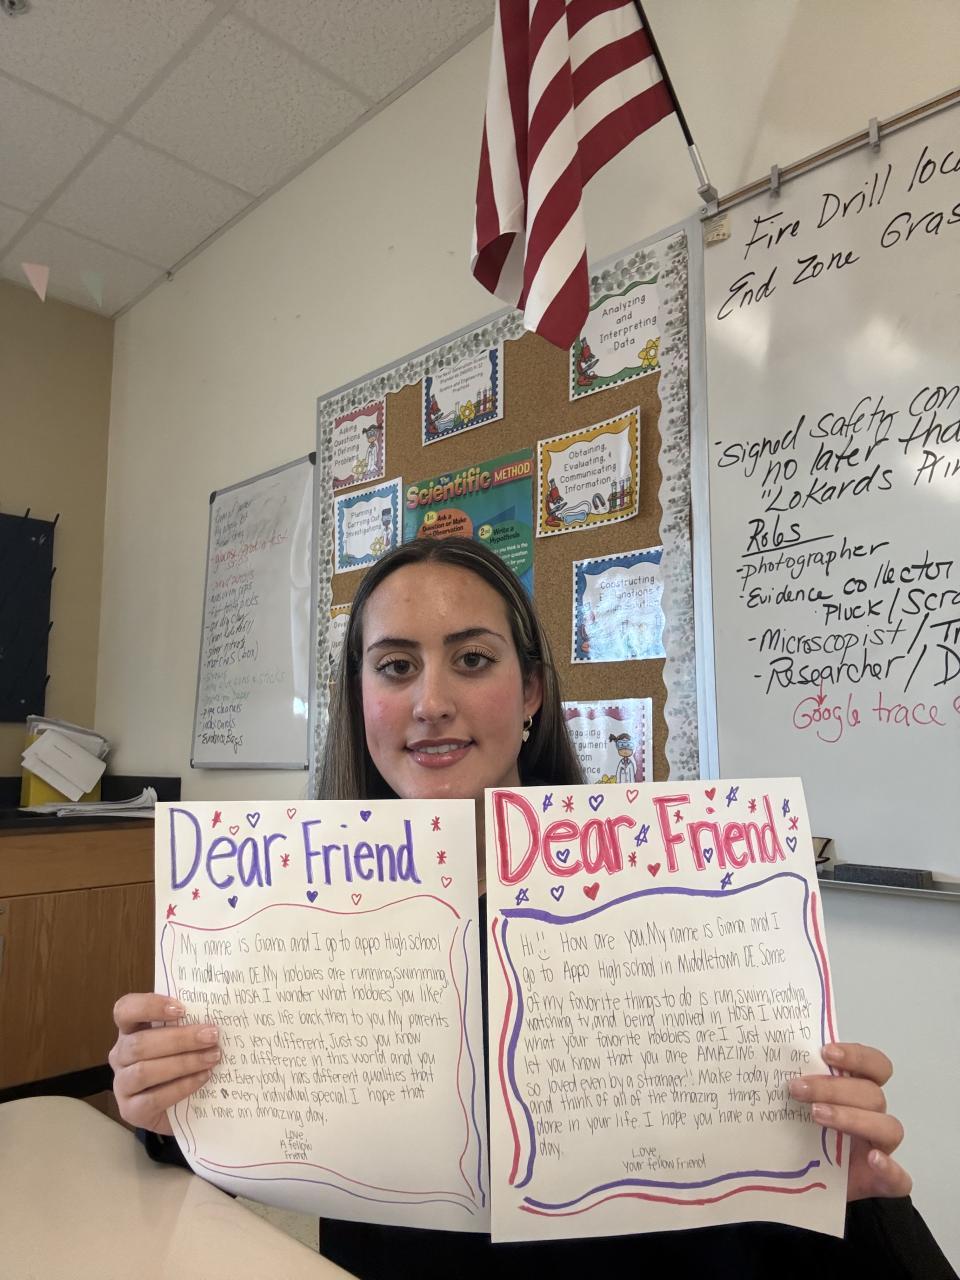 Fire Drill
End Zone Gras
Analyzing
and
Interpreting
Data
Science and Engineering
Practices
Asking
Questions
& Defining
Problems
Obtaining,
Evaluating, &
Communicating
Information
The
Scientific METHOD
1st Ask a
Question or Make
an Observation
2nd Write a
Hypothesis
Planning &
Carrying Out
Investigations
Constructing
signed safety con
no later tha
"Lokards Prin
Roles
-photographer
-Evidence collector
Pluck/Scra
-Microscopist/Tr
-Researcher/D
Google trace
Evidence Bags
Dear Friend
My name is Giana and I go to appo High school
in middletown DE. My hobbies are running, swimming,
reading, and HOSA. I wonder what hobbies you like?
How different was life back then to you. My parents
it is very different. Just so you know
a difference in this world and you
loved. Everybody has different qualities that
make every individual special. I hope that
you have an amazing day.
Love,
A fellow
Friend
Dear Friend
Hi!! How are you. My name is Giana and I
go to Appo High school in Middletown DE. Some
of my favorite things to do is run, swim, reading,
watching tv, and being involved in HOSA. I wonder
what your favorite hobbies are. I Just want to
let you know that you are AMAZING. You are
so loved even by a stranger!! Make today great
and think of all of the amazing things you
done in your life. I hope you have a wonderful
day.
Love,
your fellow Friend